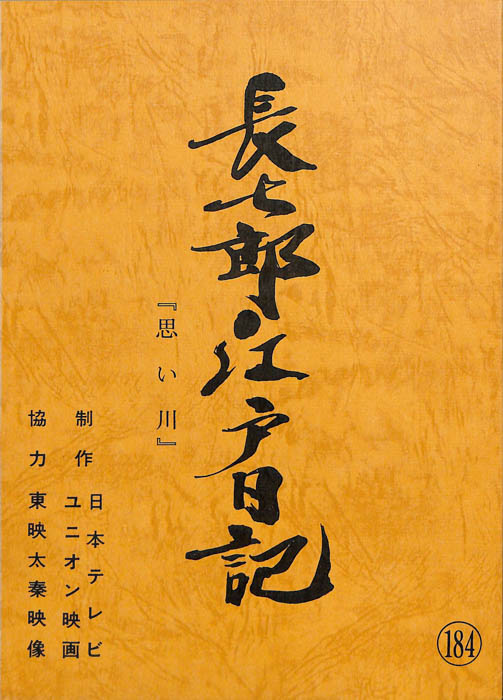 長七郎江戸日記
『思い川』
制作 日本テレビ
ユニオン映画
協力 東映太秦映像
184